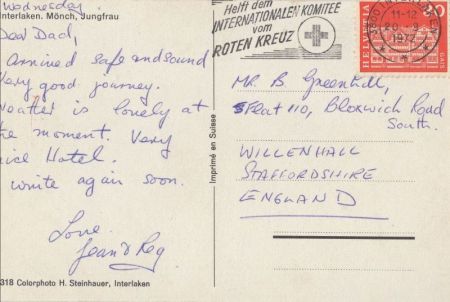 Wednesday
Interlaken. Mönch, Jungfrau
Dear Dad,
Arrived safe and sound
Very good journey.
weather is lovely at
the moment. Very
nice Hotel.
write again soon.
Love
Jean & Reg
318 Colorphoto H. Steinhauer, Interlaken
Imprimé en Suisse
Helft dem
INTERNATIONALEN KOMITEE
vom
ROTEN KREUZ
11-12
20-9
1972
HELVETIA
GAIS
MR B Greenhill,
Flat 110, Bloxwich Road
South.
WILLENHALL
STAFFORDSHIRE
ENGLAND